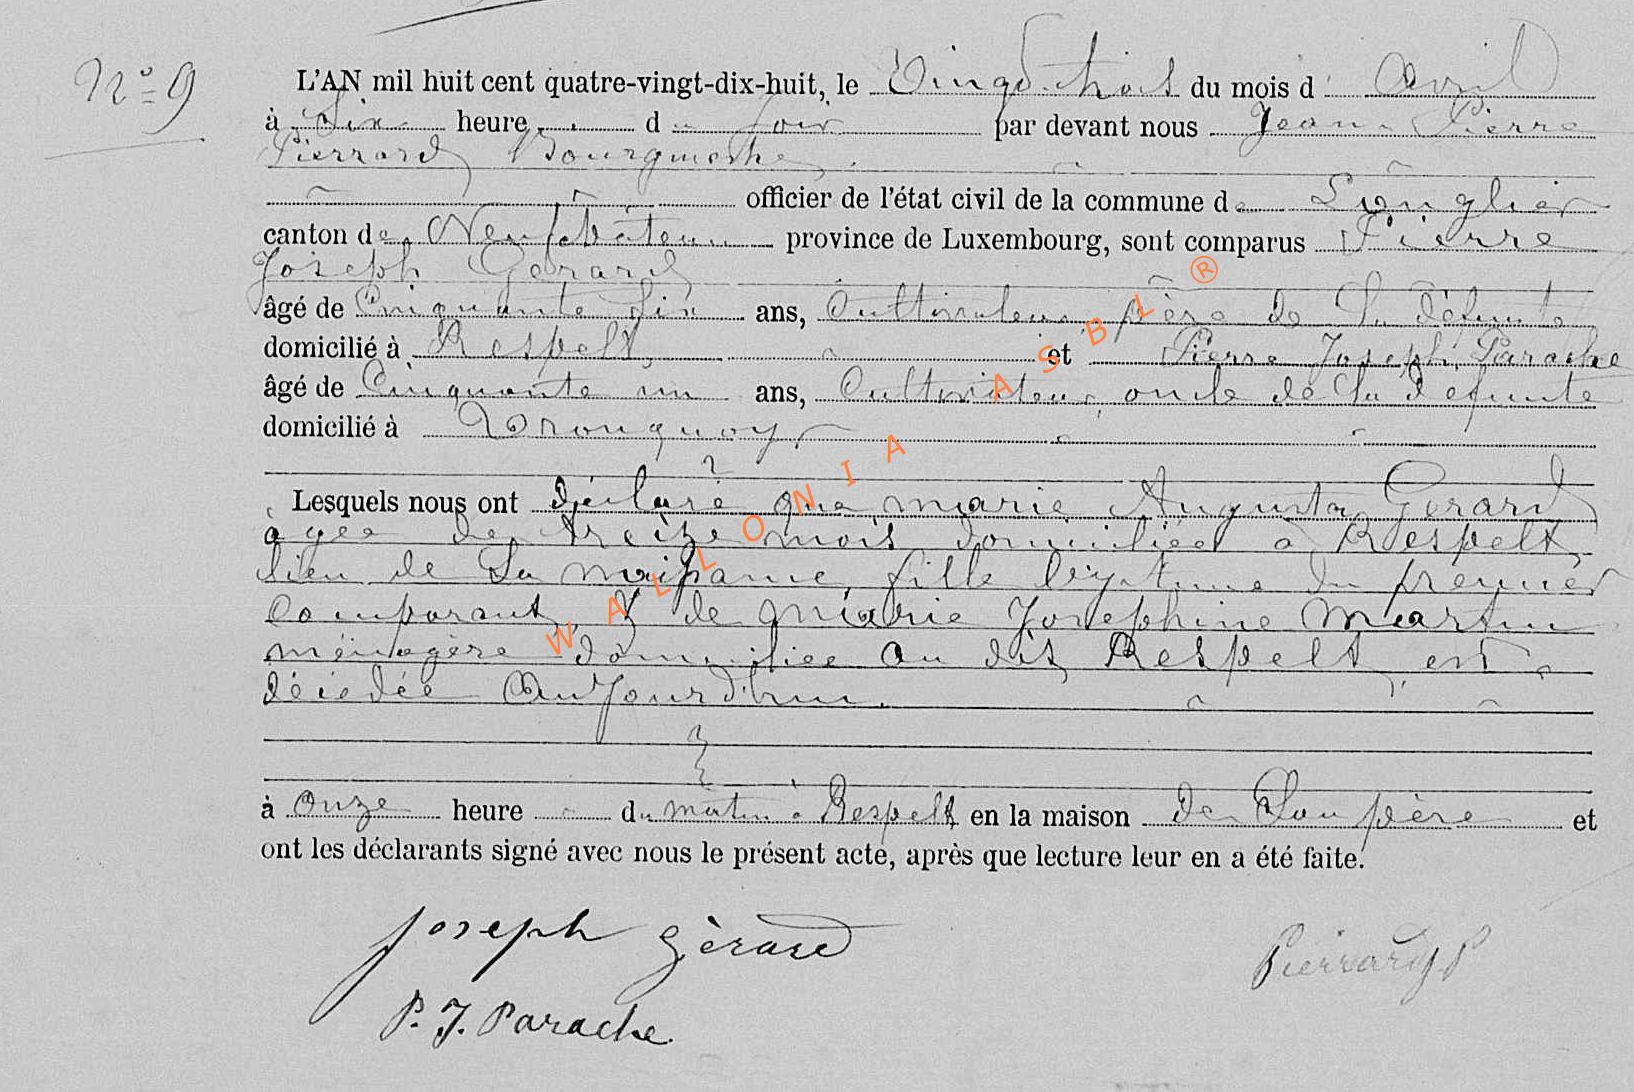 N° 9
L'AN mil huit cent quatre-vingt-dix-huit, le Vingt trois du mois d'Avril
à Six heure du soir par devant nous Jean Pierre
Pierrard Bourgmestre,
officier de l'état civil de la commune de Longlier
canton de Neufchâteau province de Luxembourg, sont comparus Pierre
Joseph Gerard
âgé de Cinquante six ans, Cultivateur père de la défunte
domicilié à Respelt, et Pierre Joseph Parache
âgé de Cinquante un ans, Cultivateur, oncle de la defunte
domicilié à Tronquoy
Lesquels nous ont déclaré que marie Augusta Gerard
agée de treize mois domiciliée à Respelt,
lieu de Sa naissance, fille légitime du premier
Comparant, & de Marie Josephine Martin
ménagère domiciliée au dit Respelt, est
décédée Aujourd'hui.
à Onze heure du matin à Respelt en la maison de Son père et
ont les déclarants signé avec nous le présent acte, après que lecture leur en a été faite.
Joseph Gèrard
Pierrard J.P
P. J. Parache
WALLONIA ASBL ®